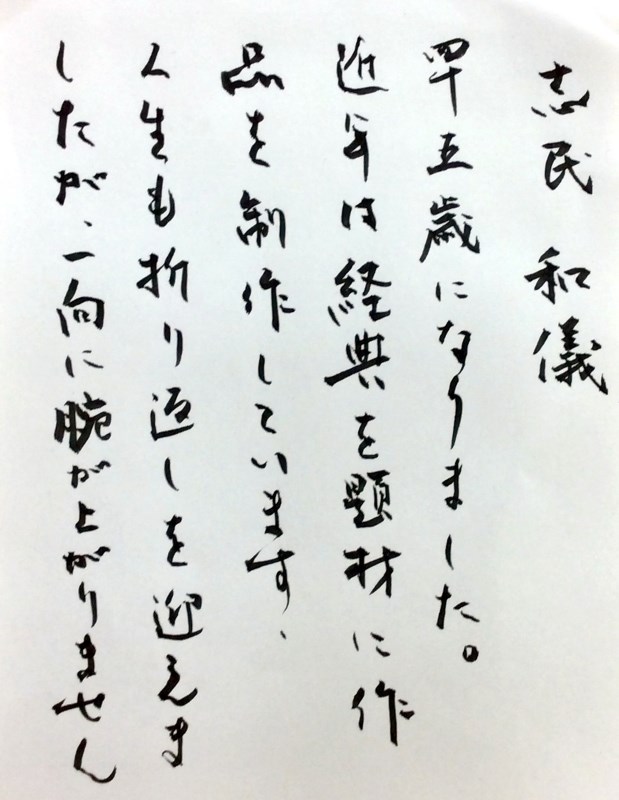 志民 和儀
四十五歳になりました。
近年は経典を題材に作
品を制作しています、
人生も折り返しを迎えま
したが、一向に腕が上がりません